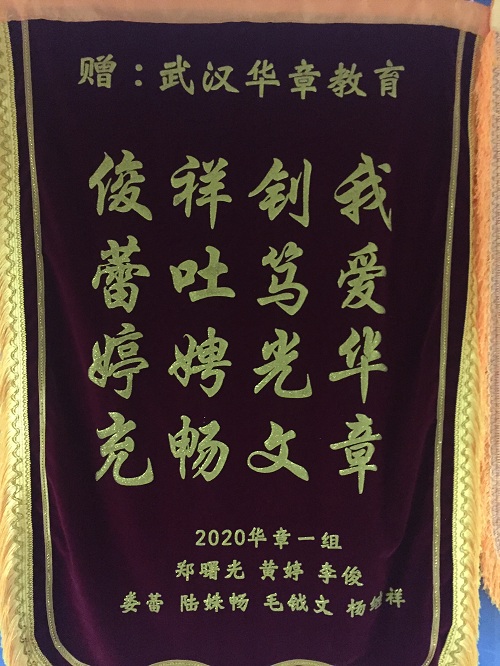 赠：武汉华章教育
我爱华章
钊笃光文
祥吐娉畅
俊蕾婷充
2020华章一组
郑曙光 黄婷 李俊
娄蕾 陆姝畅 毛钺文 杨继祥